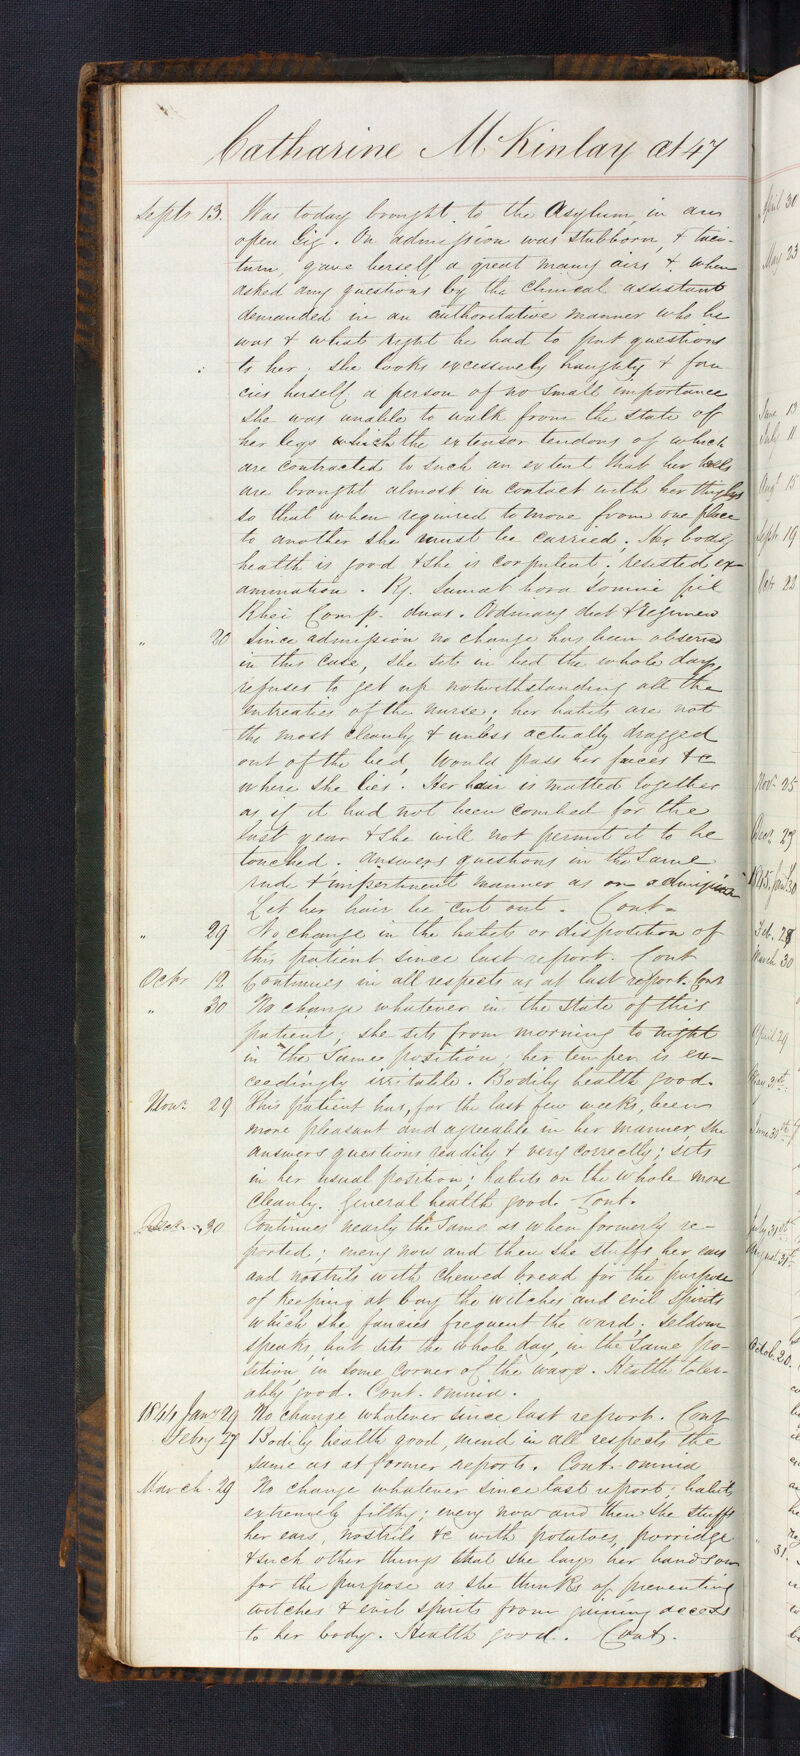 Catharine McKinlay æt 47
Septr 13. Was today brought to the Asylum in an
open Gig. On admission was stubborn, & taci-
turn, gave herself a great many airs & when
asked any questions by the Clinical assistant
demanded in an authoritative manner who he
was & what right he had to put questions
to her. She looks excessively haughty & fan-
cies herself a person of no small importance
She was unable to walk from the state of
her legs which the extensor tendons of which
are contracted to such an extent that her heels
are brought almost in contact with her thighs
so that when required to move from one place
to another she must be carried. Her bodily
health is good & she is corpulent. resisted ex-
amination. Rj. Sumat hora somni pil
Rhei Comp. duas. Ordinary diet & Regimen
" 20 Since admission no change has been observed
in this case, she sits in bed the whole day,
refuses to get up notwithstanding all the
entreaties of the nurse; her habits are not
the most cleanly & unless actually dragged
out of the bed, Would pass her fæces &c
where she lies. Her hair is matted together
as if it had not been combed for the
last year & she will not permit it to be
touched. answers questions in the same
rude & impertinent manner as on admission
Let her hair be cut out. Cont-
" 29 No change in the habits or disposition of
this patient since last report. Cont
Octr 12. Continues in all respects as at last report. Cont
" 30 No change whatever in the state of this
patient; she sits from morning to night
in the same position; her temper is ex-
ceedingly irritable. Bodily health good.
Novr 29 This patient has, for the last few weeks, been
more pleasant and agreeable in her manner, she
answers questions readily & very correctly; sits
in her usual position; habits on the whole more
cleanly. General health good. Cont.
Decr. 30 Continues nearly the same as when formerly re-
ported; every now and then she stuffs her ears
and nostrils with chewed bread for the purpose
of keeping at bay the witches and evil spirits
which she fancies frequent the ward. Seldom
speaks, but sits the whole day, in the same po-
sition, in some corner of the ward. Health toler-
ably good. Cont. omnia.
1844 Jany 29 No change whatever since last report. Cont
Febry 27 Bodily health good, mind in all respects the
same as at former reports. Cont. omnia
March 29 No change whatever since last report; habits
extremely filthy; every now and then she stuffs
her ears, nostrils &c with potatoes, porridge
& such other things that she lays her hands on
for the purpose as she thinks of preventing
witches & evil spirits from gaining access
to her body. Health good. Cont.
April 30
May 23
June 13
July 11
Augt 15
Septr 19
Octr 22
Novr 25
Decr 27
1845. Jany 30
Feb. 28
March 30
April 29
May 31st
June 30th
July 31st
August 31st
Octob. 20.
31.